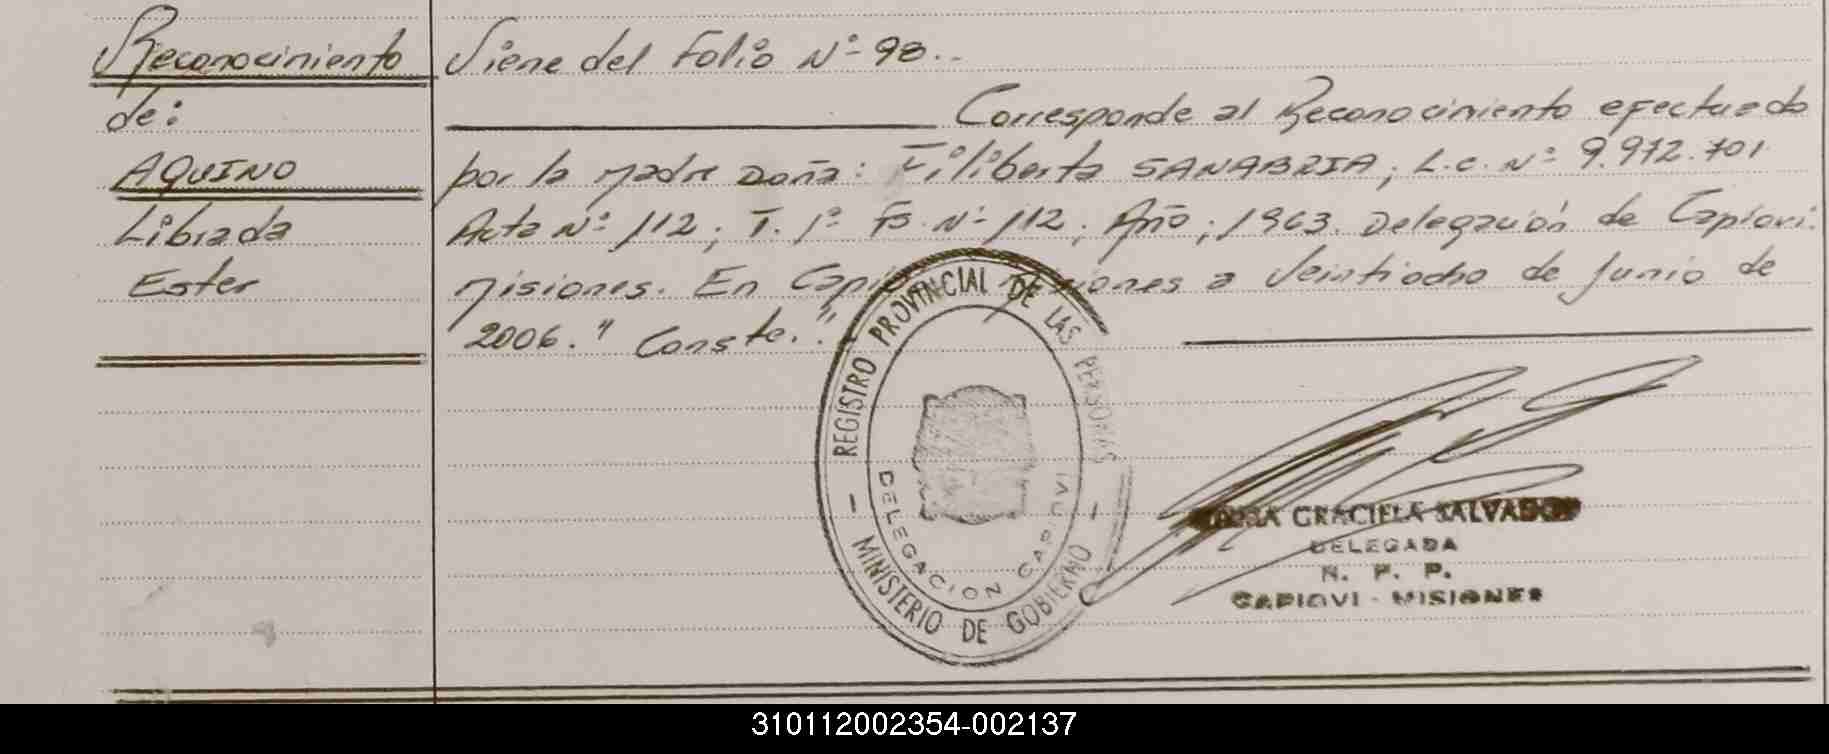 Reconocimiento
de:
AQUINO
Librada
Ester
Viene del Folio Nº 98..
Corresponde al Reconocimiento efectuado
por la madre Doña: Filiberta SANABRIA, L.C. Nº 9.972.701
Acta Nº 112, T. 1º Fº. Nº 112, Año, 1963. Delegación de Capiovi.
Misiones. En Capiovi Misiones a Veintiocho de Junio de
2006." Conste."
REGISTRO PROVINCIAL DE LAS PERSONAS
MINISTERIO DE GOBIERNO
DELEGACION CAPIOVI
GRACIELA SALVADOR
DELEGADA
R. P. P.
CAPIOVI - MISIONES
310112002354-002137